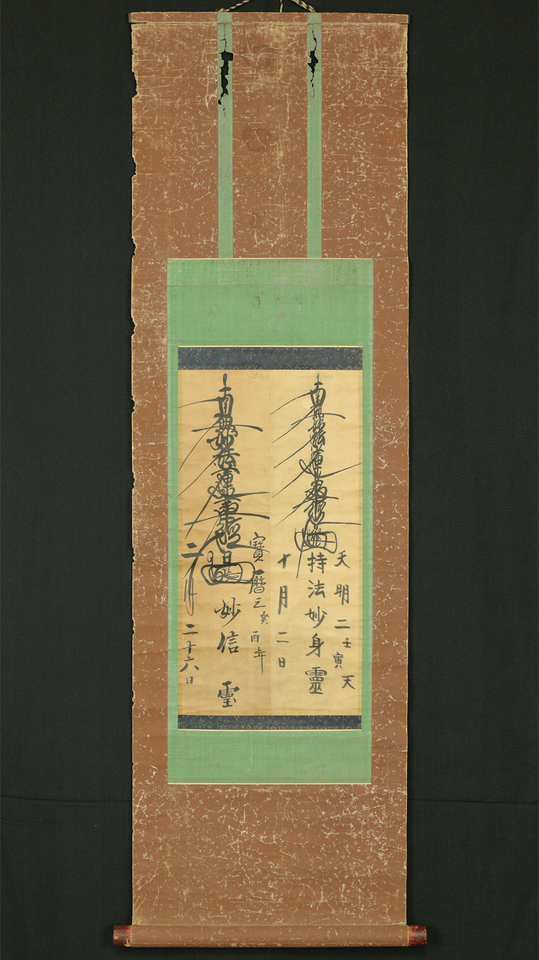 天明二壬寅天
南無妙法蓮華經
持法妙身靈
十月二日
寶曆三癸酉年
南無妙法蓮華經
妙信靈
二月二十六日